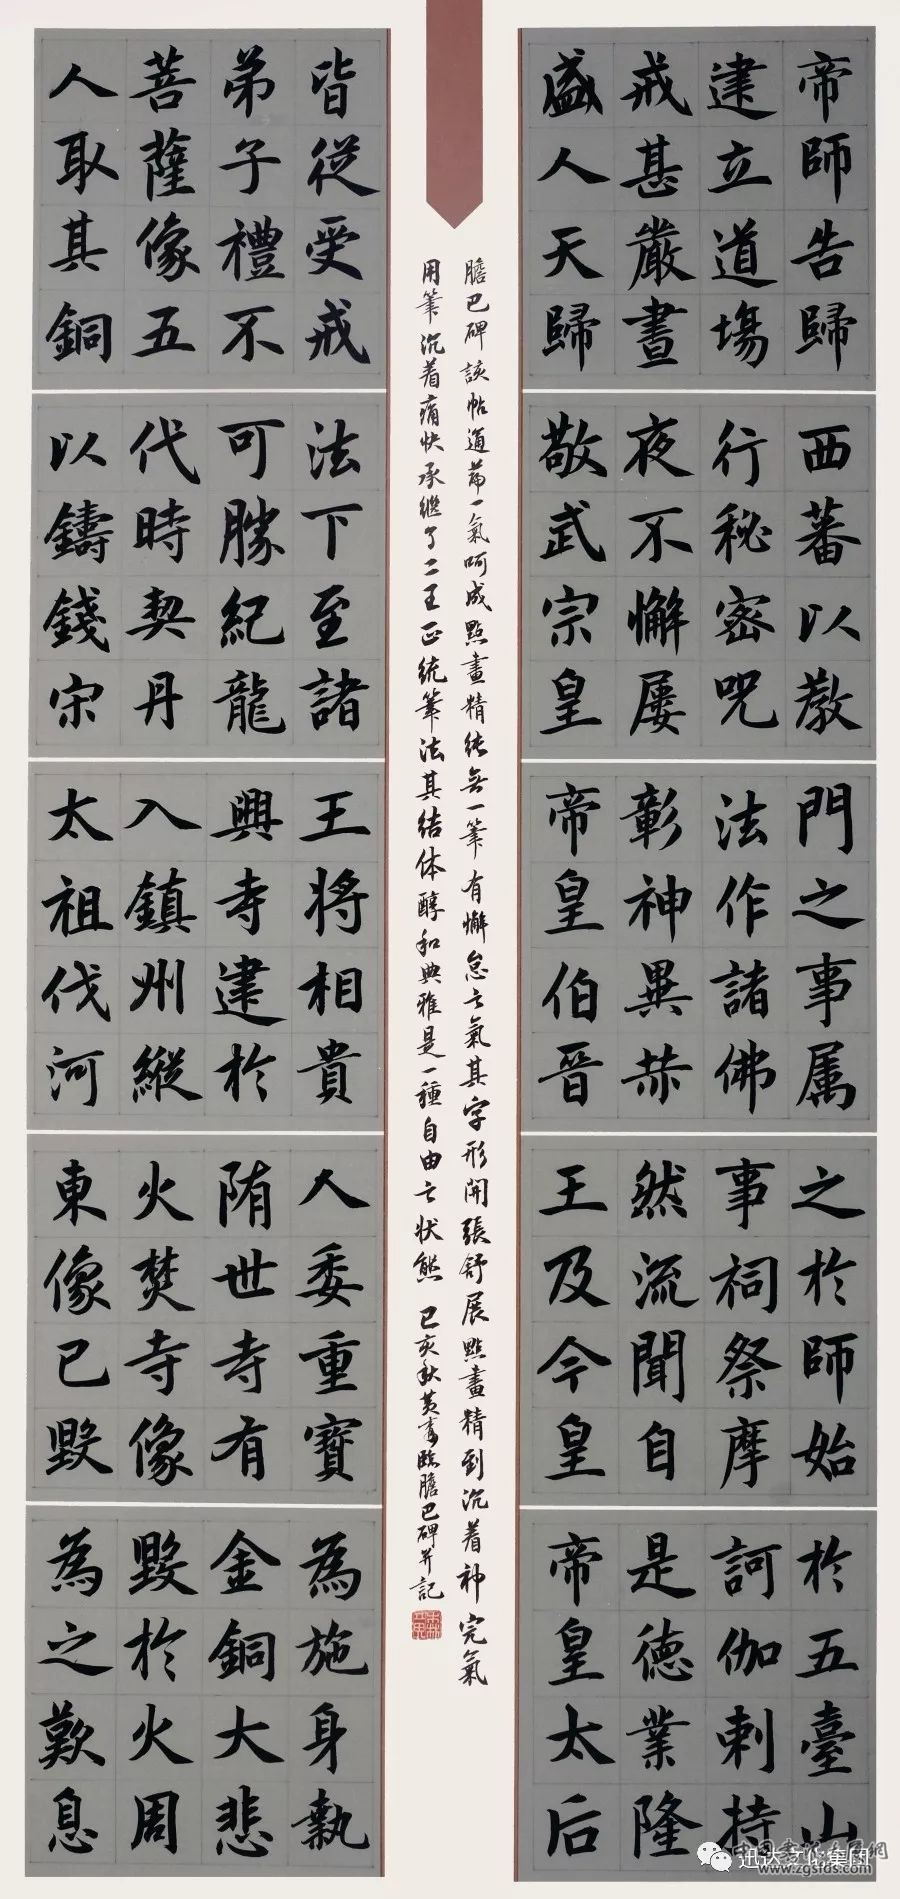 帝師告歸西蕃以教門之事属之於師始於五臺山
建立道場行秘密咒法作諸佛事祠祭摩訶伽剌持
戒甚嚴晝夜不懈屡彰神異赫然流聞自是德業隆
盛人天歸敬武宗皇帝皇伯晋王及今皇帝皇太后
皆從受戒法下至諸王將相貴人委重寶為施身執
弟子禮不可勝紀龍興寺建於隋世寺有金銅大悲
菩薩像五代時契丹入鎮州縱火焚寺像毁於火周
人取其銅以鑄錢宋太祖伐河東像已毁為之歎息
膽巴碑該帖通篇一氣呵成點畫精純無一筆有懈怠之氣其字形開張舒展點畫精到沉着神完氣
用筆沉着痛快承繼了二王正统筆法其结体醇和典雅是一種自由之状態 己亥秋黄臨膽巴碑并記
迅达文化集团
www.zgsfds.com